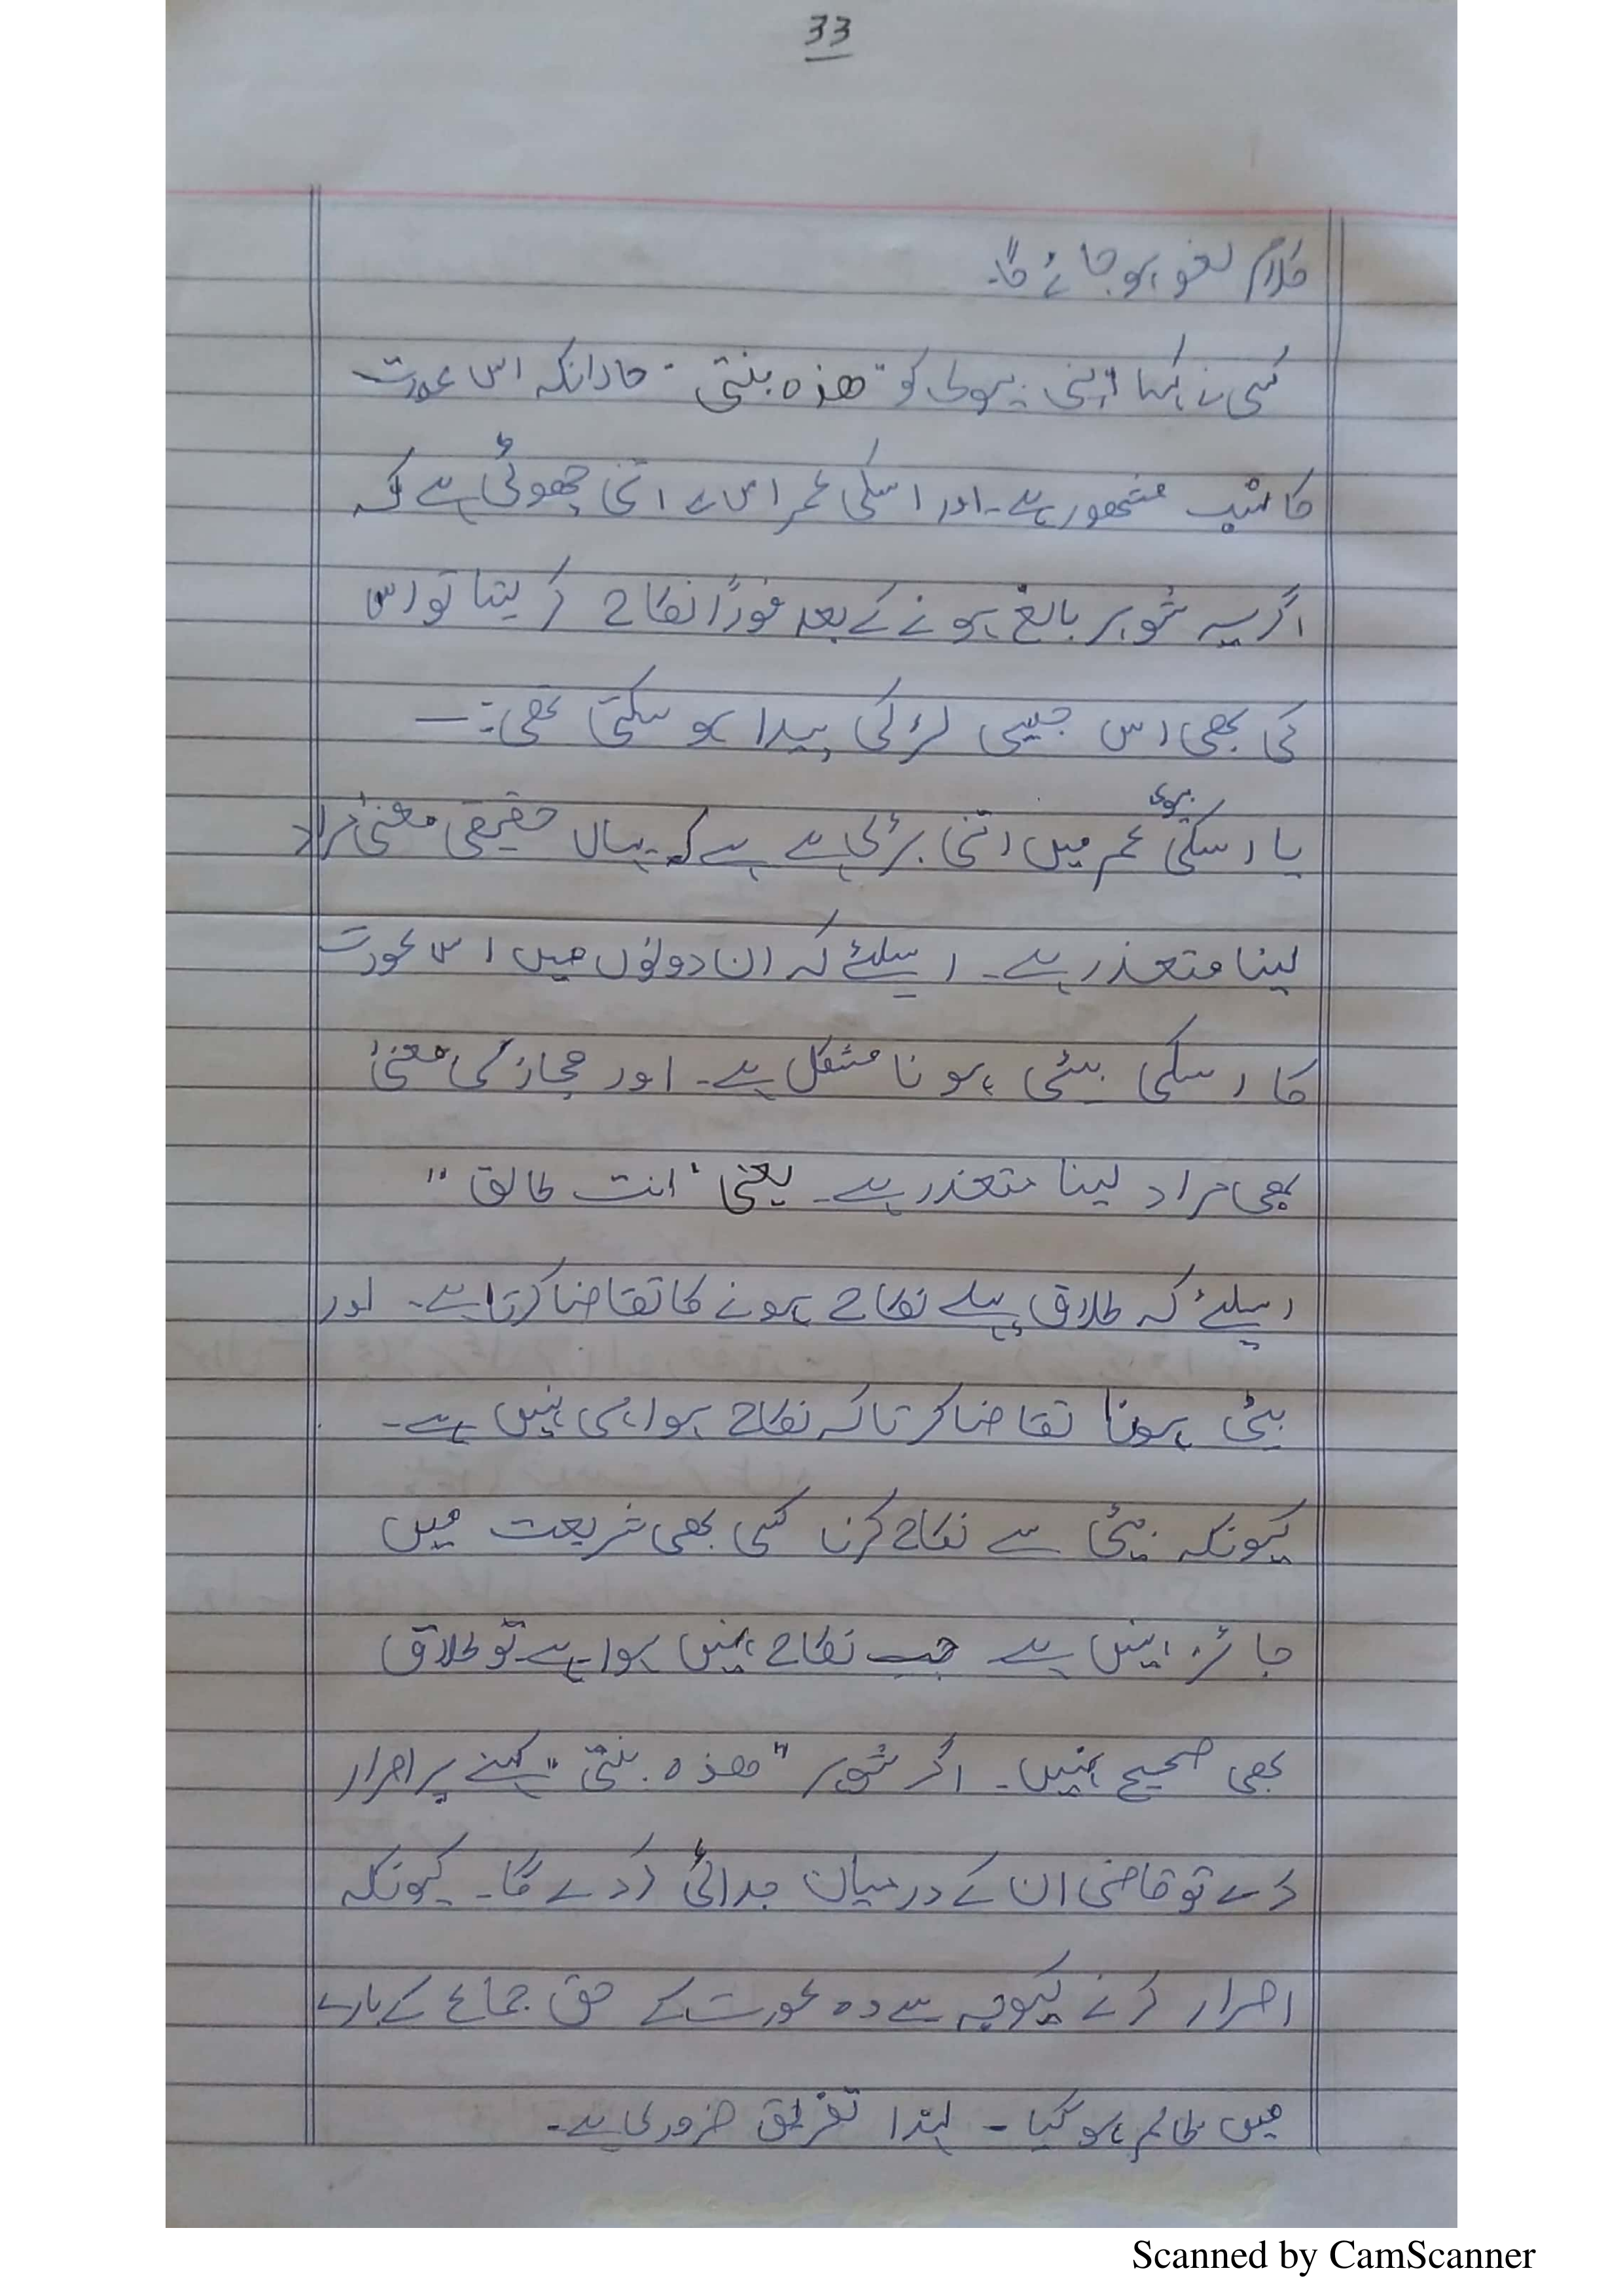 33
کلام لغو ہو جائے گا۔
کسی نے کہا اپنی بیوی کو "ھذہ بنتی" حالانکہ اس عورت
کا نسب مشھور ہے۔ اور اسکی عمر اس سے اتنی چھوٹی ہے کہ
اگر یہ شوہر بالغ ہونے کے بعد فوراً نکاح کر لیتا تو اس
کی بھی اس جیسی لڑکی پیدا ہو سکتی تھی :۔
یا اسکی بیوی عمر میں اتنی بڑی ہے ہے کہ یہاں حقیقی معنیٰ مراد
لینا متعذر ہے۔ اسلئے کہ ان دونوں میں اس عورت
کا اسکی بیٹی ہونا مشکل ہے۔ اور مجاز کی معنیٰ
بھی مراد لینا متعذر ہے۔ یعنی "انت طالق"
اسلئے کہ طلاق پہلے نکاح ہونے کا تقاضا کرتا ہے۔ اور
بیٹی ہونا تقاضا کرتا کہ نکاح ہوا ہی نہیں ہے۔
کیونکہ بیٹی سے نکاح کرنا کسی بھی شریعت میں
جائز نہیں ہے جب نکاح نہیں ہوا ہے تو طلاق
بھی صحیح نہیں۔ اگر شوہر "ھذہ بنتی" کہنے پر اصرار
کرے تو قاضی ان کے درمیان جدائی کردے گا۔ کیونکہ
اصرار کرنے کیوجہ سے وہ عورت کے حق جماع کے بارے
میں ظالم ہو گیا ۔ لہذا تفریق ضروری ہے۔
Scanned by CamScanner